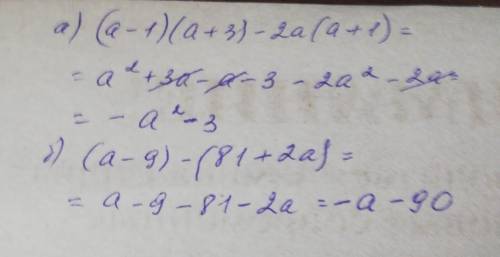 а) (a-1)(a+3)-2a(a+1)=
= a² + 3a - a - 3 - 2a² - 2a=
= - a² - 3
б) (a-9)-(81+2a)=
= a - 9 - 81 - 2a = -a - 90